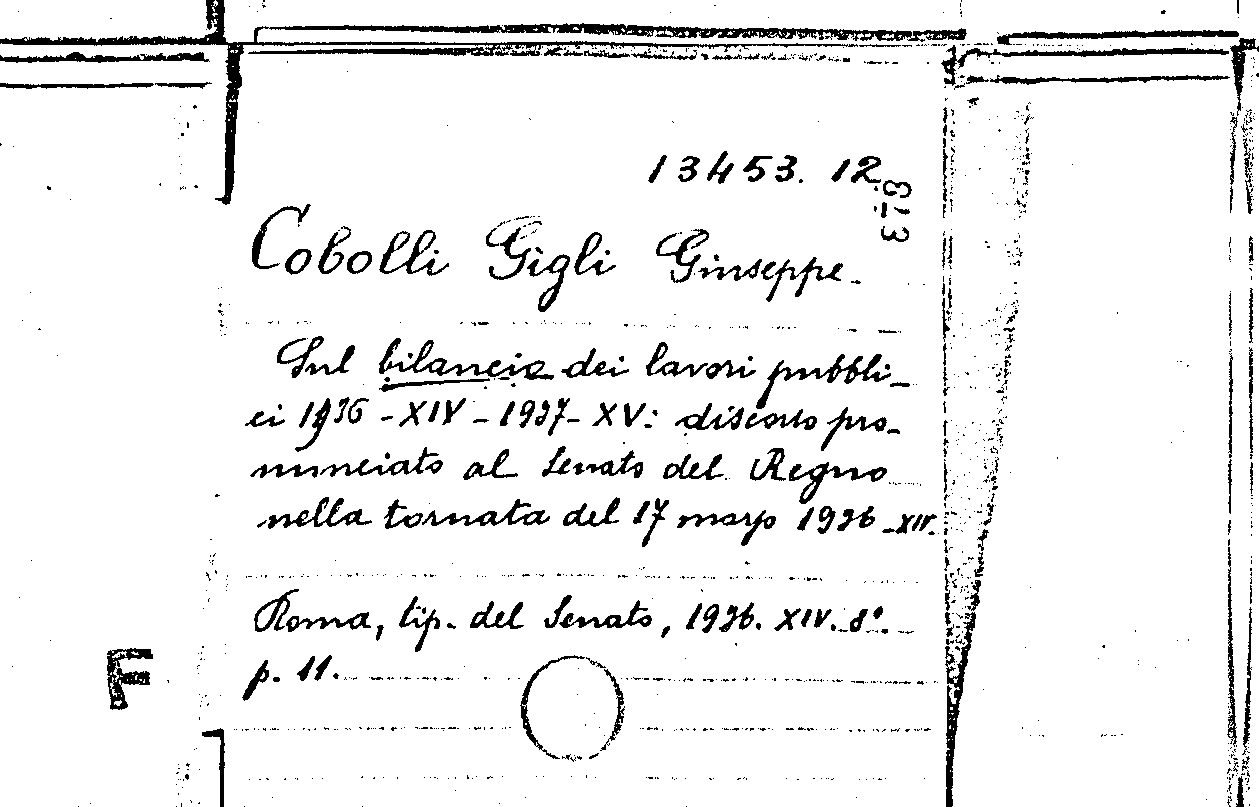 13453. 12
Cobolli Gigli Giuseppe.
Sul bilancio dei lavori pubbli-
ci 1936 - XIV - 1937 - XV: discorso pro-
nunciato al Senato del Regno
nella tornata del 17 marzo 1936 - XIV.
Roma, tip. del Senato, 1936. XIV. 8°.
p. 11.
F